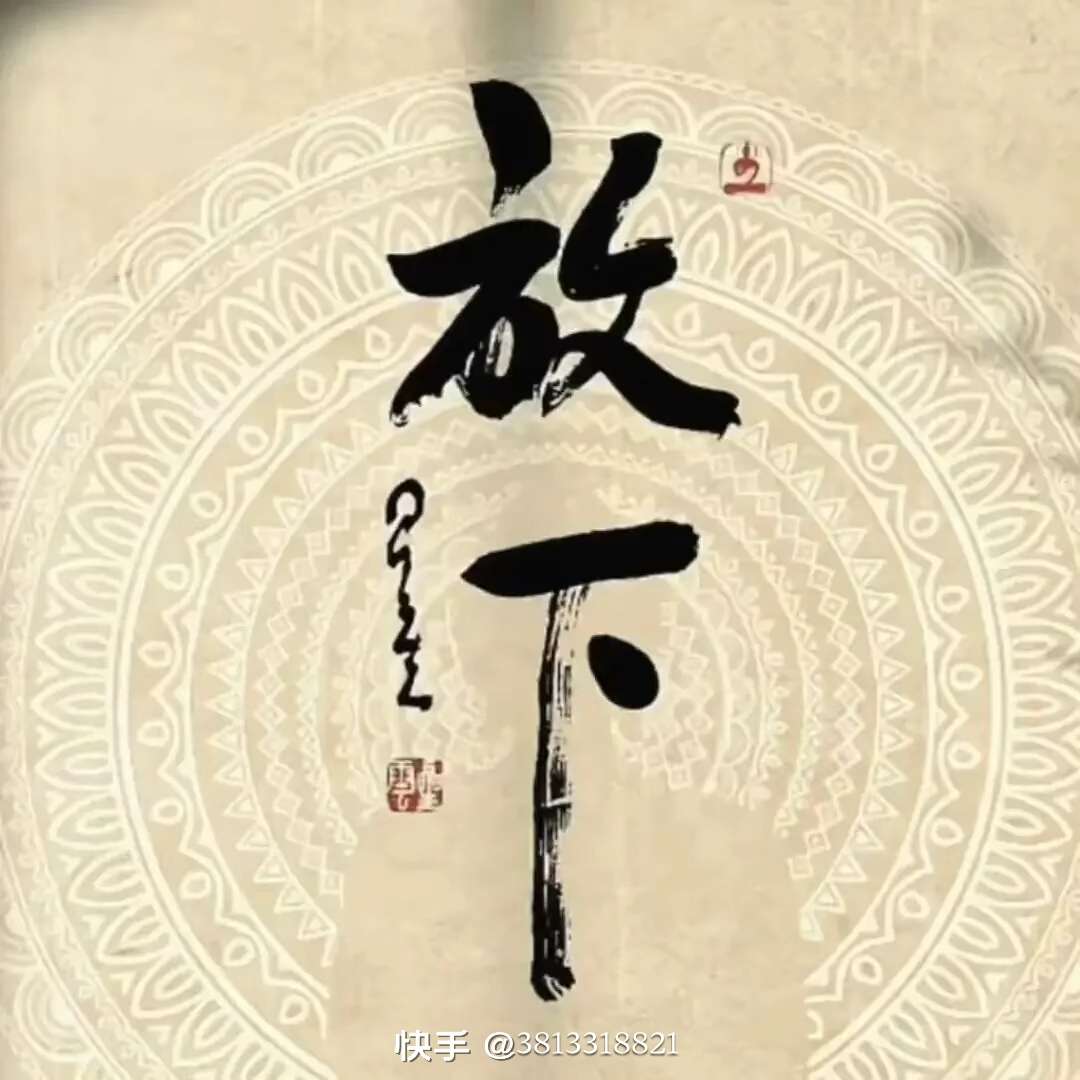 放下
快手 @3813318821